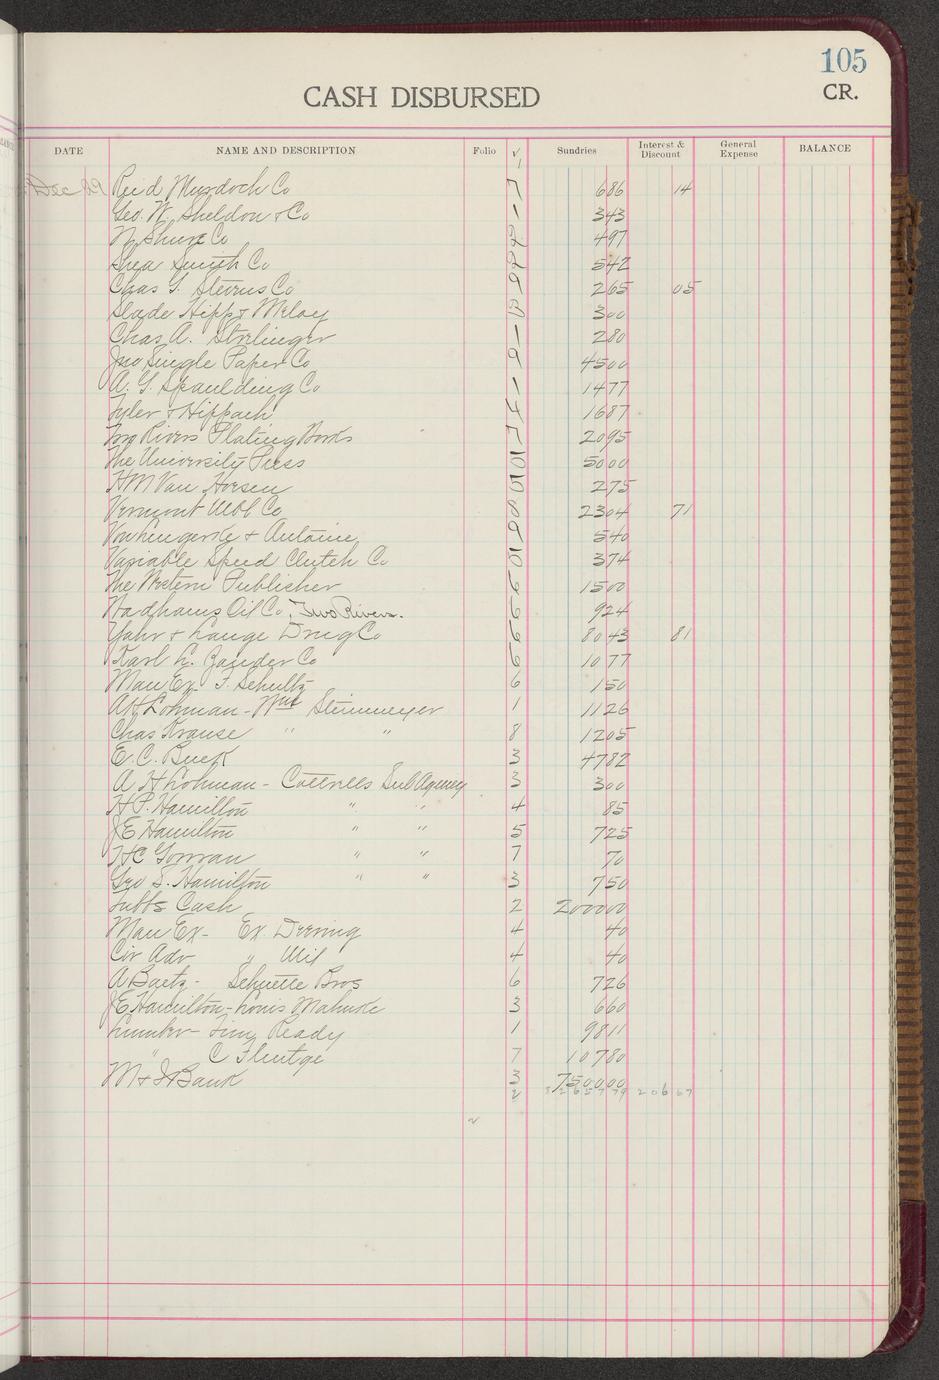 105
CASH DISBURSED CR.
DATE NAME AND DESCRIPTION Folio √ Sundries Interest & Discount General Expense BALANCE
Dec 29 Reid Murdoch Co 7 686 14
Geo. W. Sheldon & Co 1 343
N Shure Co 497
Shea Smith Co 542
Chas G. Stevens Co 9 265 05
Slade Hipp & Meloy 300
Chas A. Strelinger 1 280
Jno Single Paper Co 9 4500
A. G. Spaulding Co 1 1477
Tyler & Hippach 1687
Two Rivers Plating Works 2095
The University Press 5000
H M Van Hoesen 275
Vermont Mbl Co 2304 71
& Antoine 9 540
Variable Speed Clutch Co 374
The Western Publisher 6 1500
Wadhams Oil Co. Two Rivers. 6 924
Yahr & Lange Drug Co 6 8043 81
Karl L. Zander Co 6 1077
Man Ex- F. Schultz 6 150
A H Lohman - Wm Steinmeyer 1 1126
Chas Krause " " 8 1205
E. C. Buek 3 4782
A H Lohman - Cottrells Sub Agency 3 300
H P. Hamilton " " 4 85
J E Hamilton " " 5 725
H C Gowran " " 7 70
Geo S. Hamilton " " 3 750
Tubbs Cash 2 200000
Man Ex- Ex Deering 4 40
Cir Adv " Mil 4 40
A Baetz - Schuette Bros 6 726
J E Hamilton - Louis Mahnke 3 660
Lumber - Tim Ready 1 9811
" C Fluetge 7 10780
M & I Bank 3 750000
206 67